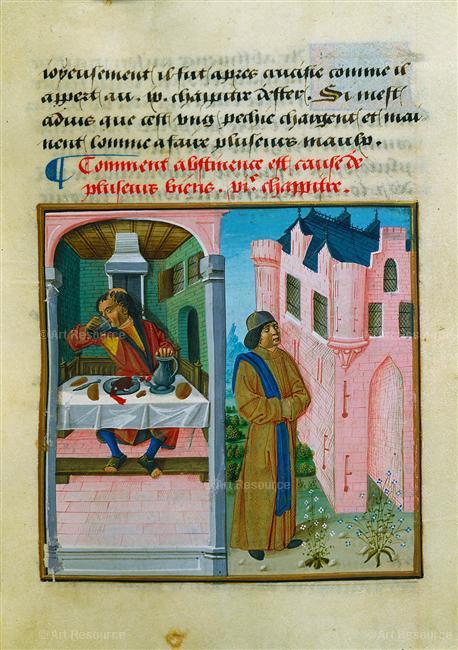 ioyeusement il fut apres crucifie comme il
appert au. chappitre dester. Si mest
aduis que cest vng pechie chargent et mai
nent lomme a faire pluseurs maulx.
Comment abstinence est cause de
pluseurs biens. vi.e chappitre.
© Art Resource
© Art Resource
© Art Resource
© Art Resource
© Art Resource
© Art Resource